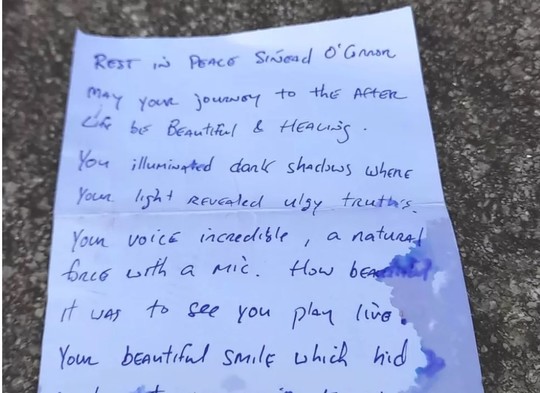 REST IN PEACE SINEAD O'Connor
MAY YOUR JOURNEY to the AFTER
Life be Beautiful & HEALING.
You illuminated dark shadows where
Your light REVEALED ulgy truths.
Your voice incredible, a natural
force with a mic. How beautiful
it was to see you play live.
Your beautiful smile which hid